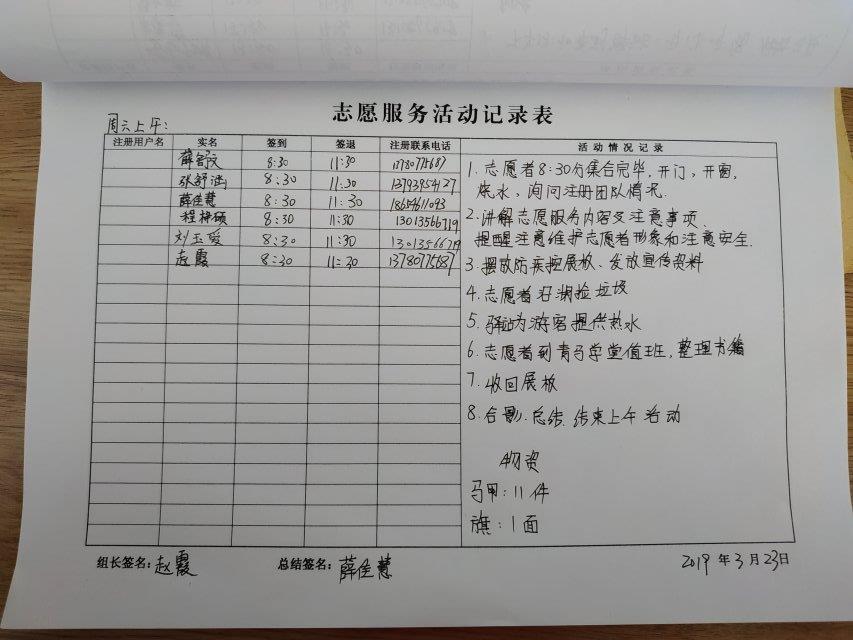 志愿服务活动记录表
周六上午:
注册用户名 实名 签到 签退 注册联系电话 活动情况记录
薛舒文 8:30 11:30
张舒涵 8:30 11:30 13793954127
薛佳慧 8:30 11:30 18654611093
程梓硕 8:30 11:30 13013566719
刘玉爱 8:30 11:30 13013566719
赵霞 8:30 11:30 13780775687
1. 志愿者8:30分集合完毕,开门,开窗,
烧水、询问注册团队情况.
2. 讲解志愿服务内容及注意事项、
提醒注意维护志愿者形象和注意安全.
3. 摆放防疾控展板、发放宣传资料
4. 志愿者沿湖捡垃圾
5. 驿站为游客提供热水
6. 志愿者到青马学堂值班,整理书籍
7. 收回展板
8. 合影.总结.结束上午活动
物资
马甲:11件
旗:1面
组长签名:赵霞 总结签名:薛佳慧 2019年3月23日